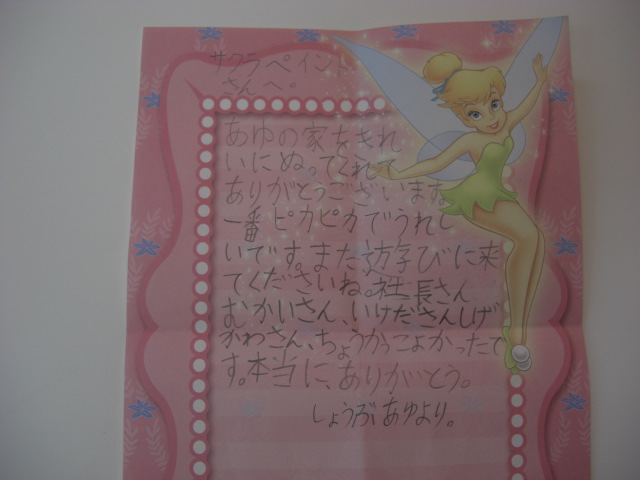 サクラペイント
さんへ。
あゆの家をきれ
いにぬってくれて
ありがとうございます
一番ピカピカでうれし
いです。また遊びに来
てくださいね。社長さん
むかいさん、いけださんしげ
かわさん、ちょうかっこよかったで
す。本当に、ありがとう。
しょうぶあゆより。